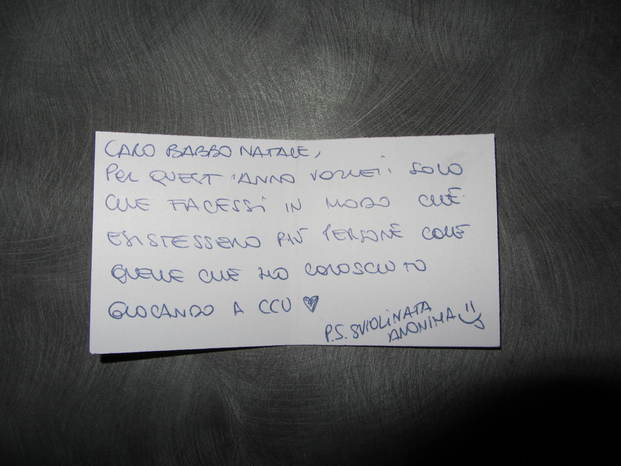 CARO BABBO NATALE,
PER QUEST'ANNO VORREI SOLO
CHE FACESSI IN MODO CHE
ESISTESSERO PIÙ PERSONE COME
QUELLE CHE HO CONOSCIUTO
GIOCANDO A CCU ♥
P.S. SVIOLINATA
ANONIMA